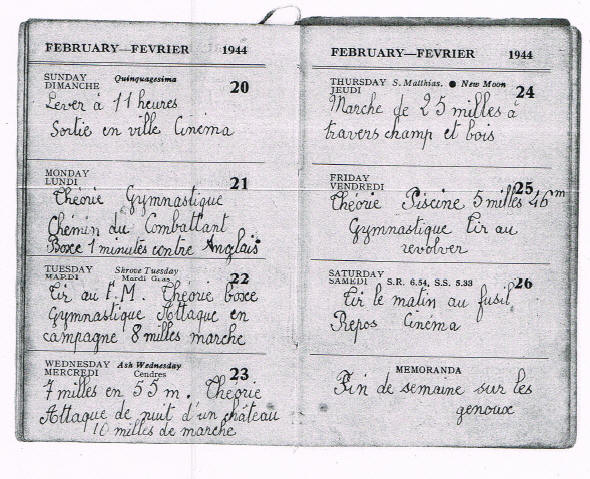 FEBRUARY—FEVRIER 1944
SUNDAY Quinquagesima
DIMANCHE 20
Lever à 11 heures
Sortie en ville Cinéma
MONDAY
LUNDI 21
Théorie Gymnastique
Chemin du Combattant
Boxe 1 minutes contre Anglais
TUESDAY Shrove Tuesday
MARDI Mardi Gras 22
Tir au F.M. Théorie boxe
Gymnastique Attaque en
campagne 8 milles marche
WEDNESDAY Ash Wednesday
MERCREDI Cendres 23
7 milles en 55 m. Theorie
Attaque de nuit d'un château
10 milles de marche
FEBRUARY—FEVRIER 1944
THURSDAY S. Matthias. ● New Moon
JEUDI 24
Marche de 25 milles à
travers champ et bois
FRIDAY
VENDREDI 25
Théorie Piscine 5 milles 46 m
Gymnastique Tir au
revolver
SATURDAY
SAMEDI S.R. 6.54, S.S. 5.33 26
Tir le matin au fusil
Repos Cinéma
MEMORANDA
Fin de semaine sur les
genoux